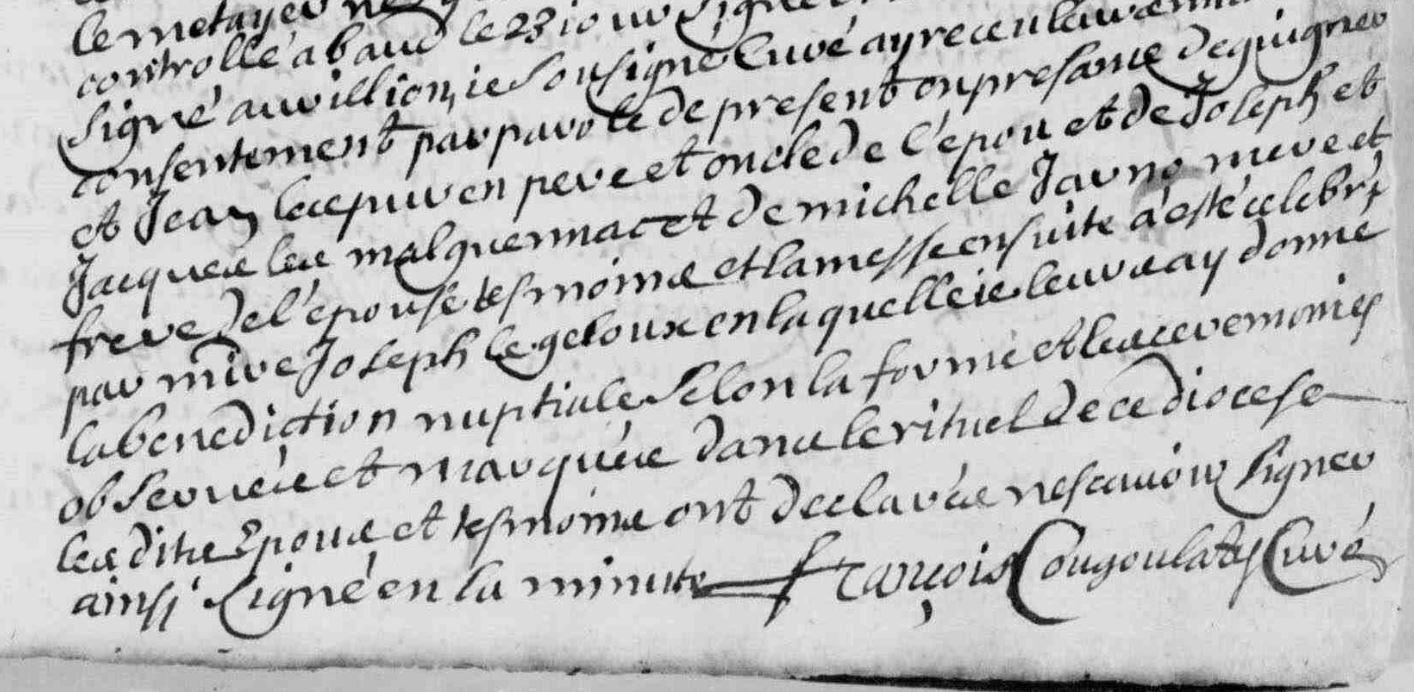 le metayer
controllé a baud le 23 jour signé
signé auvillion, je soussigné Curé ay receu leur
consentement par parole de present en presance de guigner
et Jean lescpuven pere et oncle de l'epou et de Joseph et
Jacques les malguennac et de michelle Jarno mere et
frere de l'epouse tesmoins et la messe ensuite a esté celebré
par mire Joseph le geloux en laquelle je leurs ay donné
la benediction nuptiale selon la forme et les ceremonies
observées et marquées dans le rituel de ce diocese
lesdits Epous et tesmoins ont declarés ne scavoir signer
ainsi signé en la minute françois Cougoulat Curé